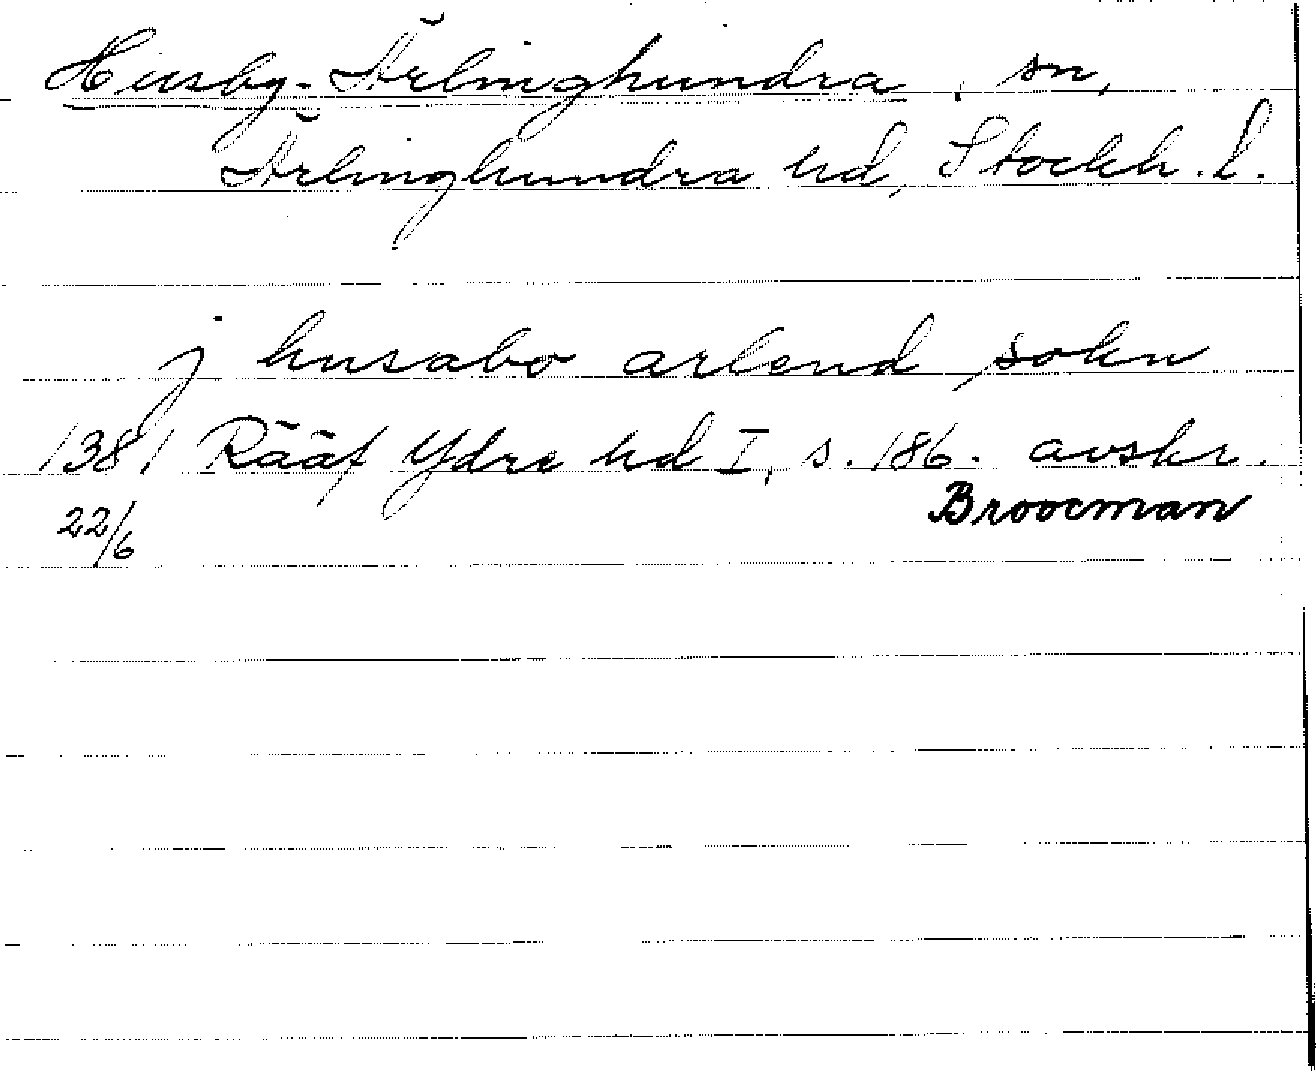 Husby-Ärlinghundra, sn,
Ärlinghundra hd, Stockh. l.
j husabo arlend sokn
1381 Rääf Ydre hd I, s. 186. avskr.
22/6 Broocman